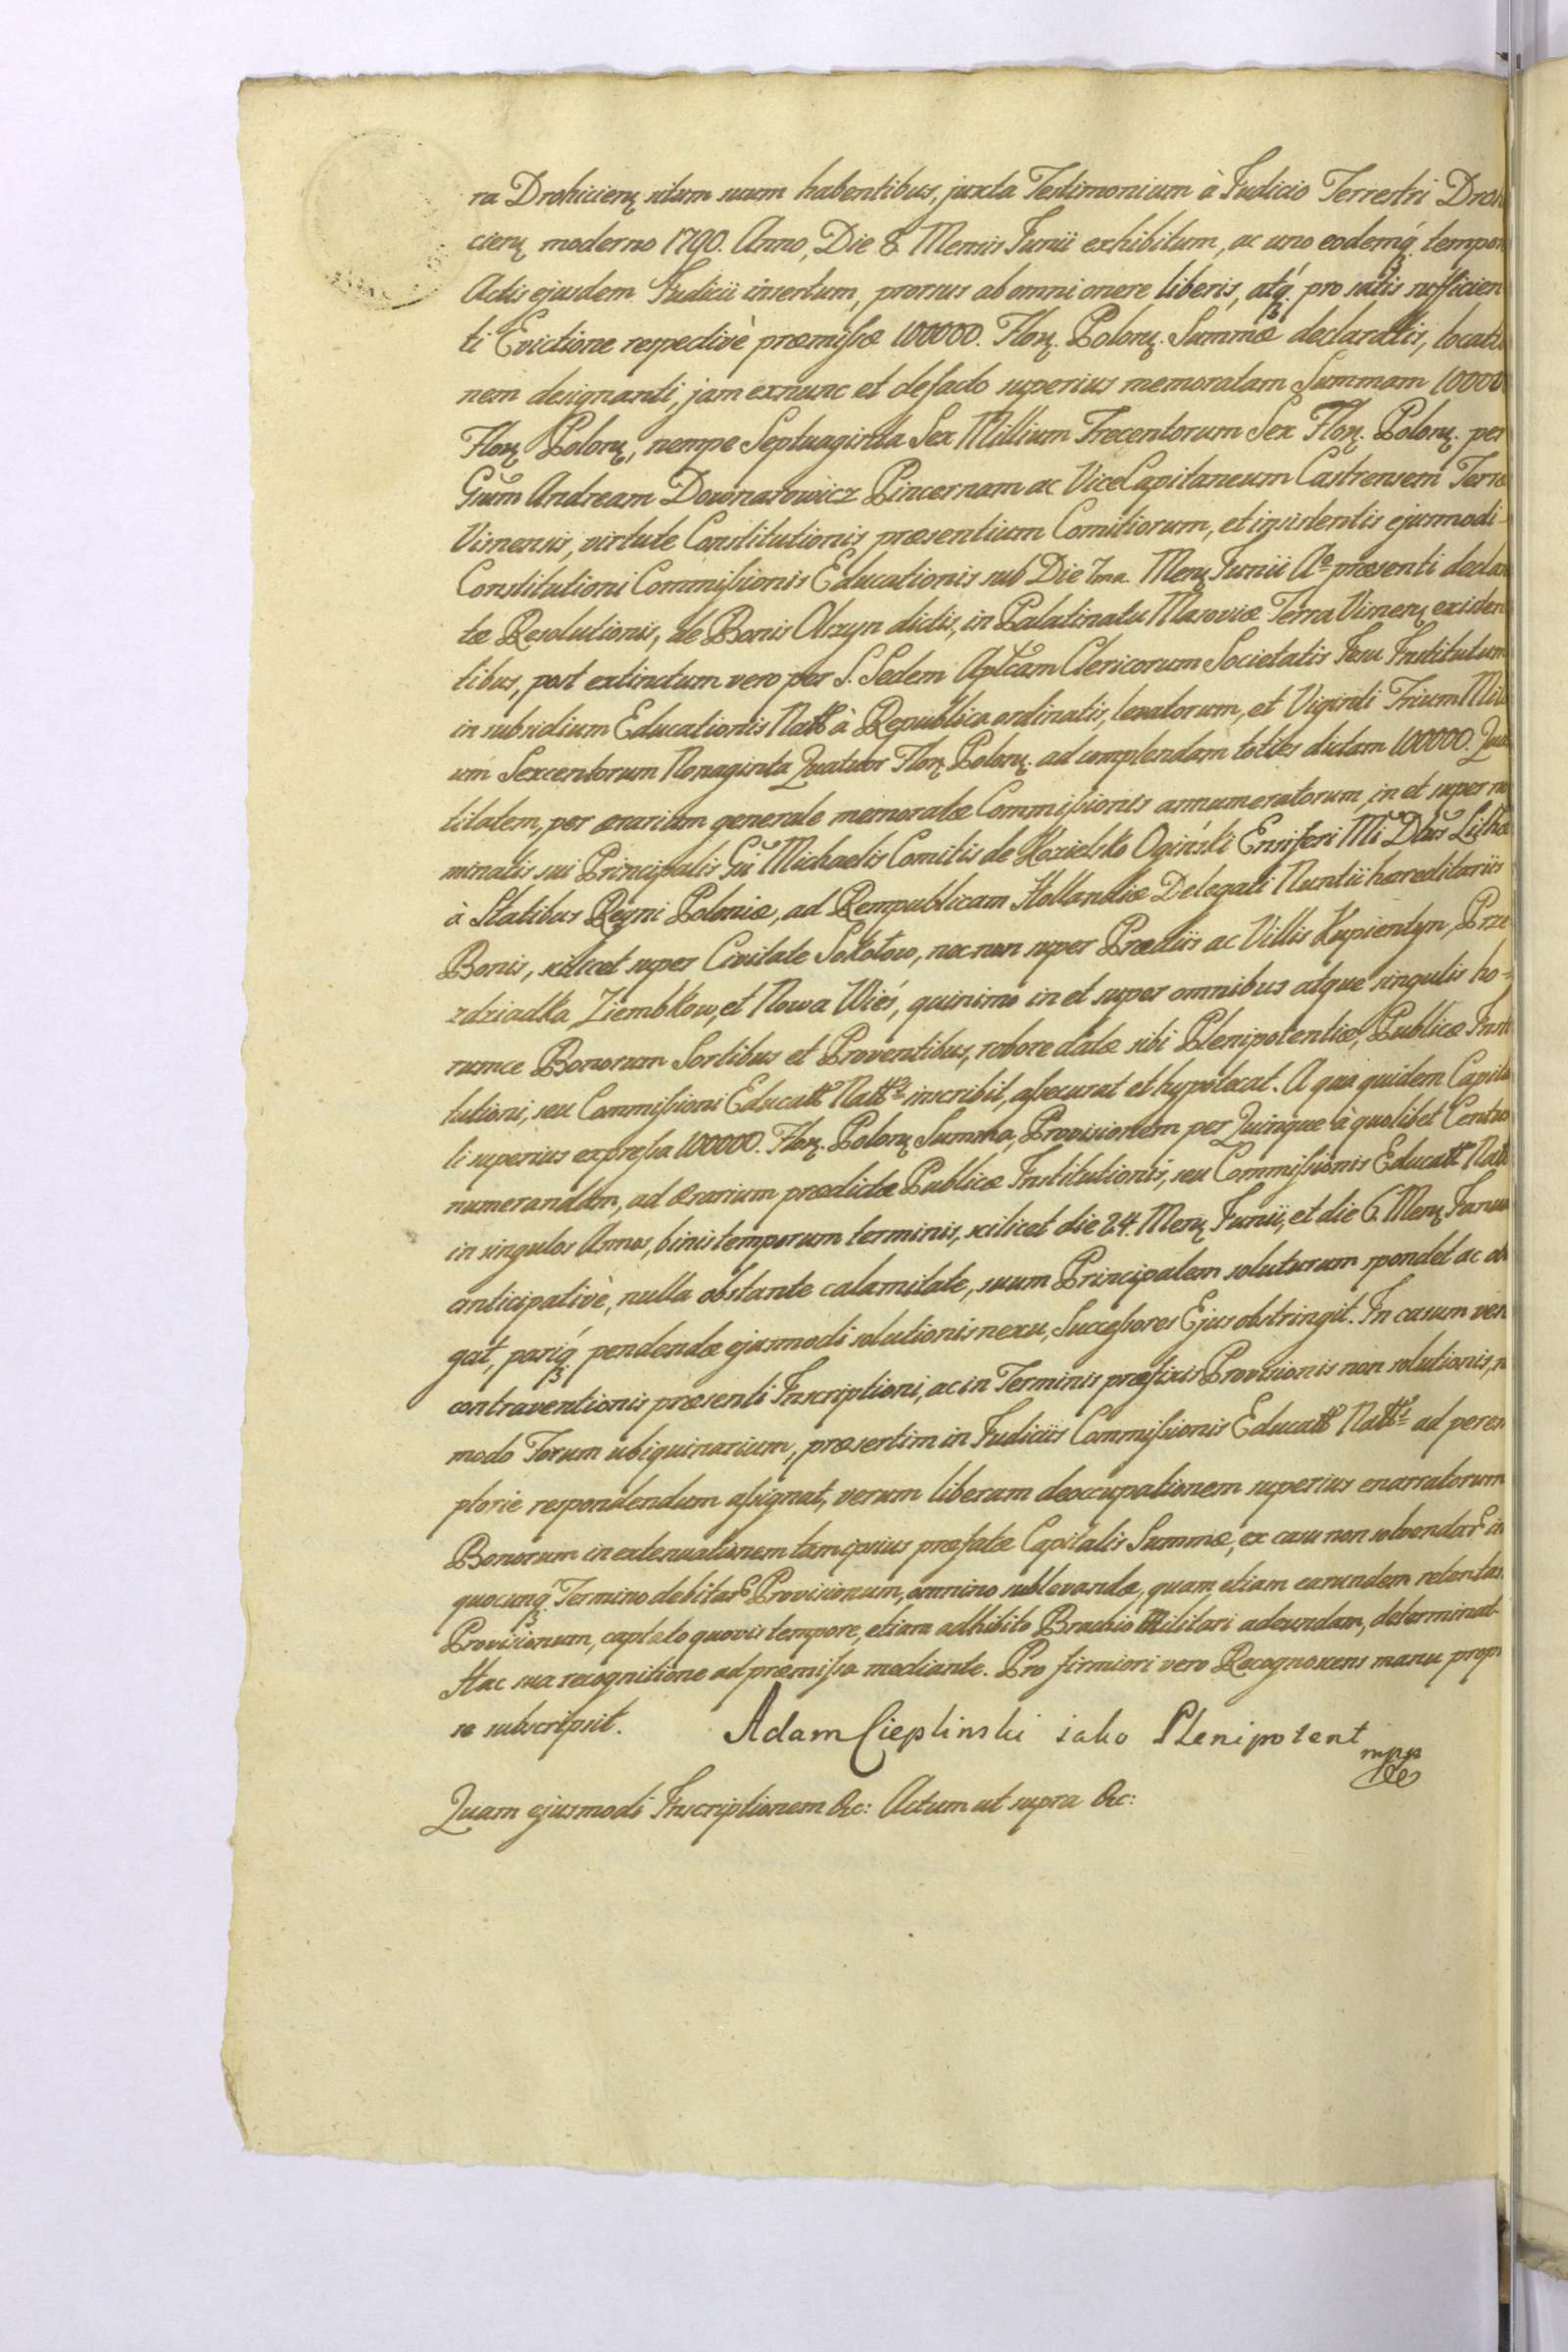 ra Drohicien: situm suum habentibus, juxta Testimonium à Judicio Terrestri Droh
cien: moderno 1790. Anno, Die 8. Mensis Junii exhibitum, ac uno eodemq́: tempor
Actis ejusdem Judicii insertum, prorsus ab omni onere liberis, atq́: pro satis sufficien
ti Evictione respectivè præmissæ 100000. Flor: Polon: Summæ declaratis, locatio
nem designanti, jam exnunc et defacto superius memoratam Summam 10000
Flor: Polon:, nempe Septuaginta Sex Millium Trecentorum Sex Flor: Polon: per
Gnum Andream Downarowicz Pincernam ac ViceCapitaneum Castrensem Terræ
Visnensis, virtute Constitutionis præsentium Comitiorum, et insistentis ejusmodi-
Constitutioni Commissionis Educationis sub Die 7ma. Mens: Junii Aº præsenti decla
tæ Resolutionis, de Bonis Olszyn dictis, in Palatinatu Masoviæ Terra Visnens: existen
tibus, post extinctum vero per S. Sedem Aptcam Clericorum Societatis Jesu Institutum
in subsidium Educationis Natt à Republica ordinatis, levatorum, et Viginti Trium Mil
um Sexcentorum Nonaginta Quatuor Flor: Polon: ad complendam toties dictam 100000. Quan
titatem, per ærarium generale memoratæ Commissionis annumeratorum, in et super no
minatis sui Principalis Gni Michaelis Comitis de Kozielsko Ogiński Ensiferi Mi Dtus Lithæ
à Statibus Regni Poloniæ, ad Rempublicam Hollandiæ Delegati Nuntii hæreditariis
Bonis, scilicet super Civitate Sokołow, nec non super Prædiis ac Villis Kupientyn, Prze
zdziadka Ziembkow, et Nowa Wieś, quinimo in et super omnibus atque singulis ho-
rumce Bonorum Sortibus et Proventibus, robore datæ sibi Plenipotentiæ, Publicæ Insti
tutioni, seu Commissioni Educatt Natt inscribit, assecurat et hypotecat. A qua quidem Capita
li superius expressa 100000. Flor: Polon: Summa, Provisionem per Quinque à quolibet Centro
numerandam, ad ærarium prædictæ Publicæ Institutionis, seu Commissionis Educatt Natt
in singulos Annos, binis temporum terminis, scilicet die 24. Mens: Junii, et die 6. Mens: Janua
anticipativè, nulla obstante calamitate, suum Principalem soluturum spondet ac ob
gat, pariq́: pendendæ ejusmodi solutionis nexu, Successores Ejus obstringit. In casum vero
contraventionis præsenti Inscriptioni, ac in Terminis præfixis Provisionis non solutionis, n
modo Forum ubiquinarium, præsertim in Judiciis Commissionis Educatt Natt ad perem
ptorie respondendum assignat, verum liberam deoccupationem superius enarratorum
Bonorum in extenuationem tam ipsius præfatæ Capitalis Summæ, ex casu non solvendar: in
quocunq́: Termino debitar: Provisionum, omnino sublevandæ, quam etiam earundem retentar:
Provisionum, captato quovis tempore, etiam adhibito Brachio Militari adeundam, determinat-
Hac sua recognitione ad præmissa mediante. Pro firmiori vero Recognoscens manu propr
se subscripsit. Adam Cieplinski iako Plenipotent
mpp
Quam ejusmodi Inscriptionem &c: Actum ut supra &c: